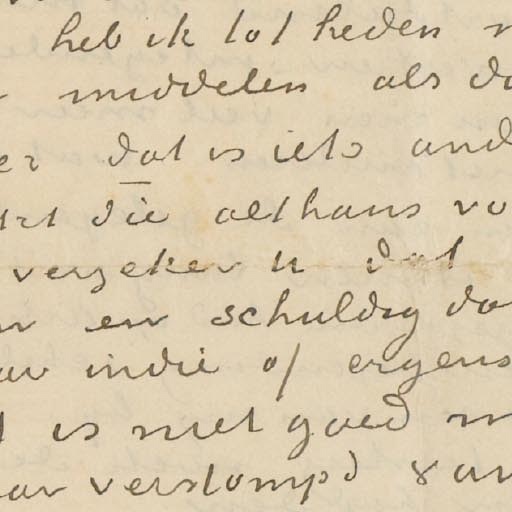 heb ik tot heden
middelen als da
er dat is iets and
die althans vo
verzeker u dat
en schuldig da
indië of ergens
is niet goed m
verstompd van